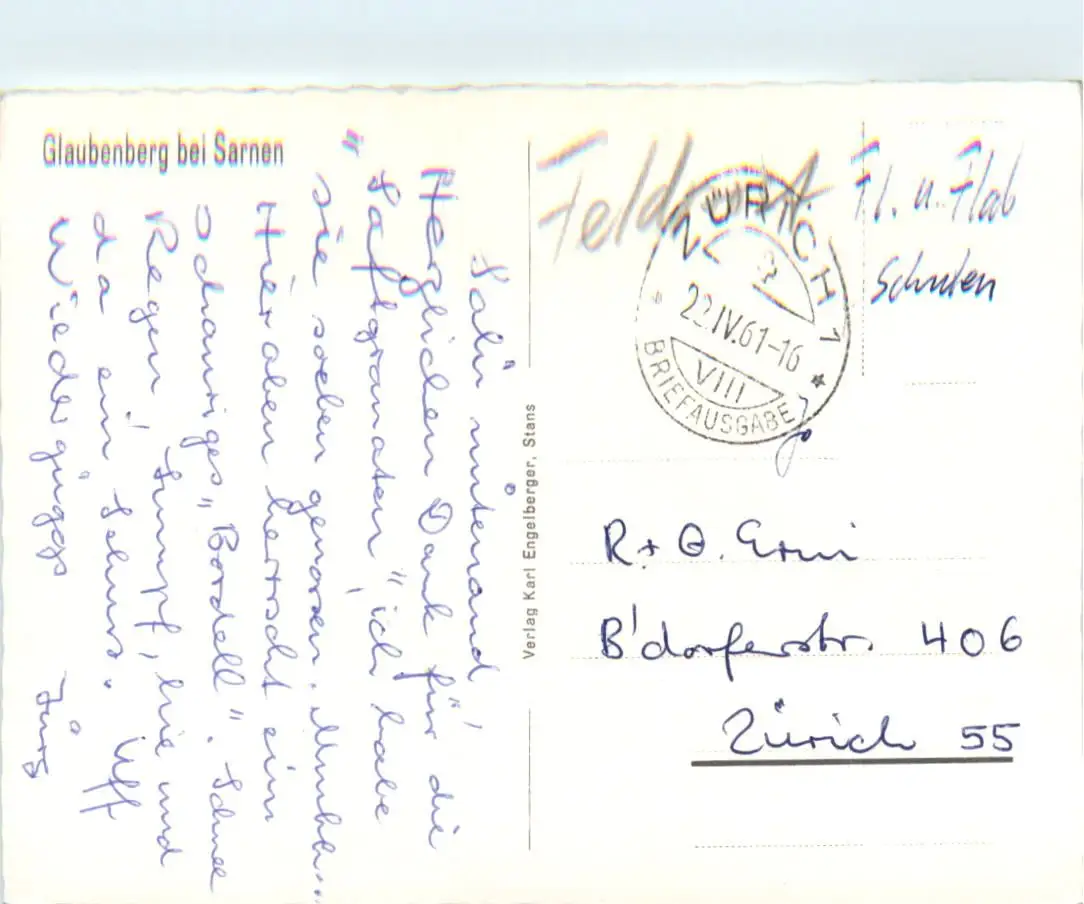 Glaubenberg bei Sarnen
Salü mitenand!
Herzlichen Dank für die
"Saftgranaten", ich habe
sie soeben genossen. Mmhh...
Hier oben herrscht ein
schauriges "Bordell". Schnee
Regen, Sumpf, hie und
da ein Schuss. Uff
Wiederguggs
Jürg
Verlag Karl Engelberger, Stans
Feldpost
Fl. u. Flab
Schulen
ZÜRICH 1
22.IV.61-16
VIII
BRIEFAUSGABE
R + O. Erni
B'dorferstr. 406
Zürich 55